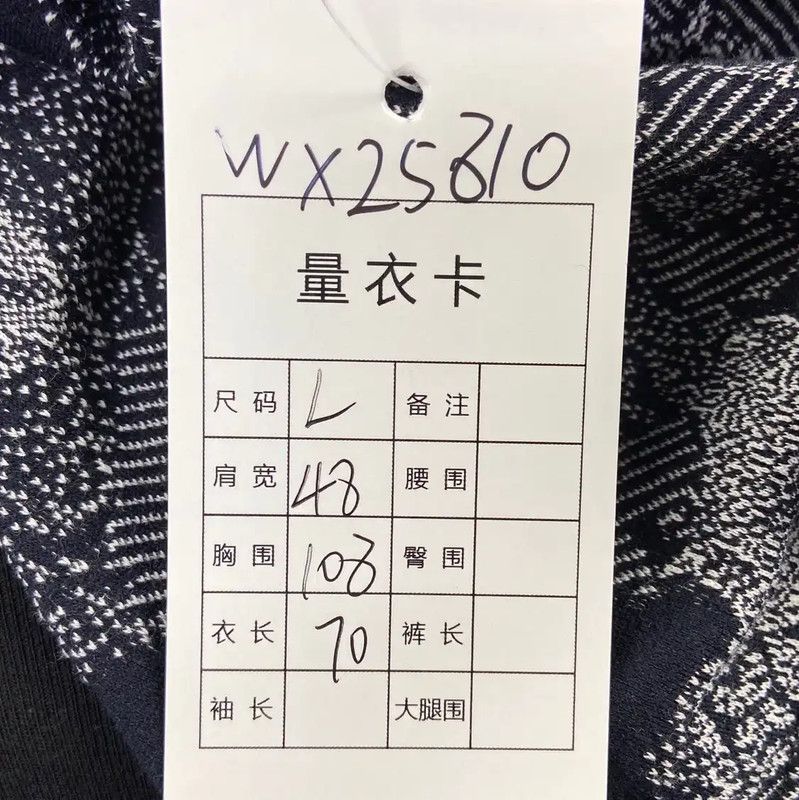 WX25810
量衣卡
尺码 L 备注
肩宽 48 腰围
胸围 108 臀围
衣长 70 裤长
袖长 大腿围